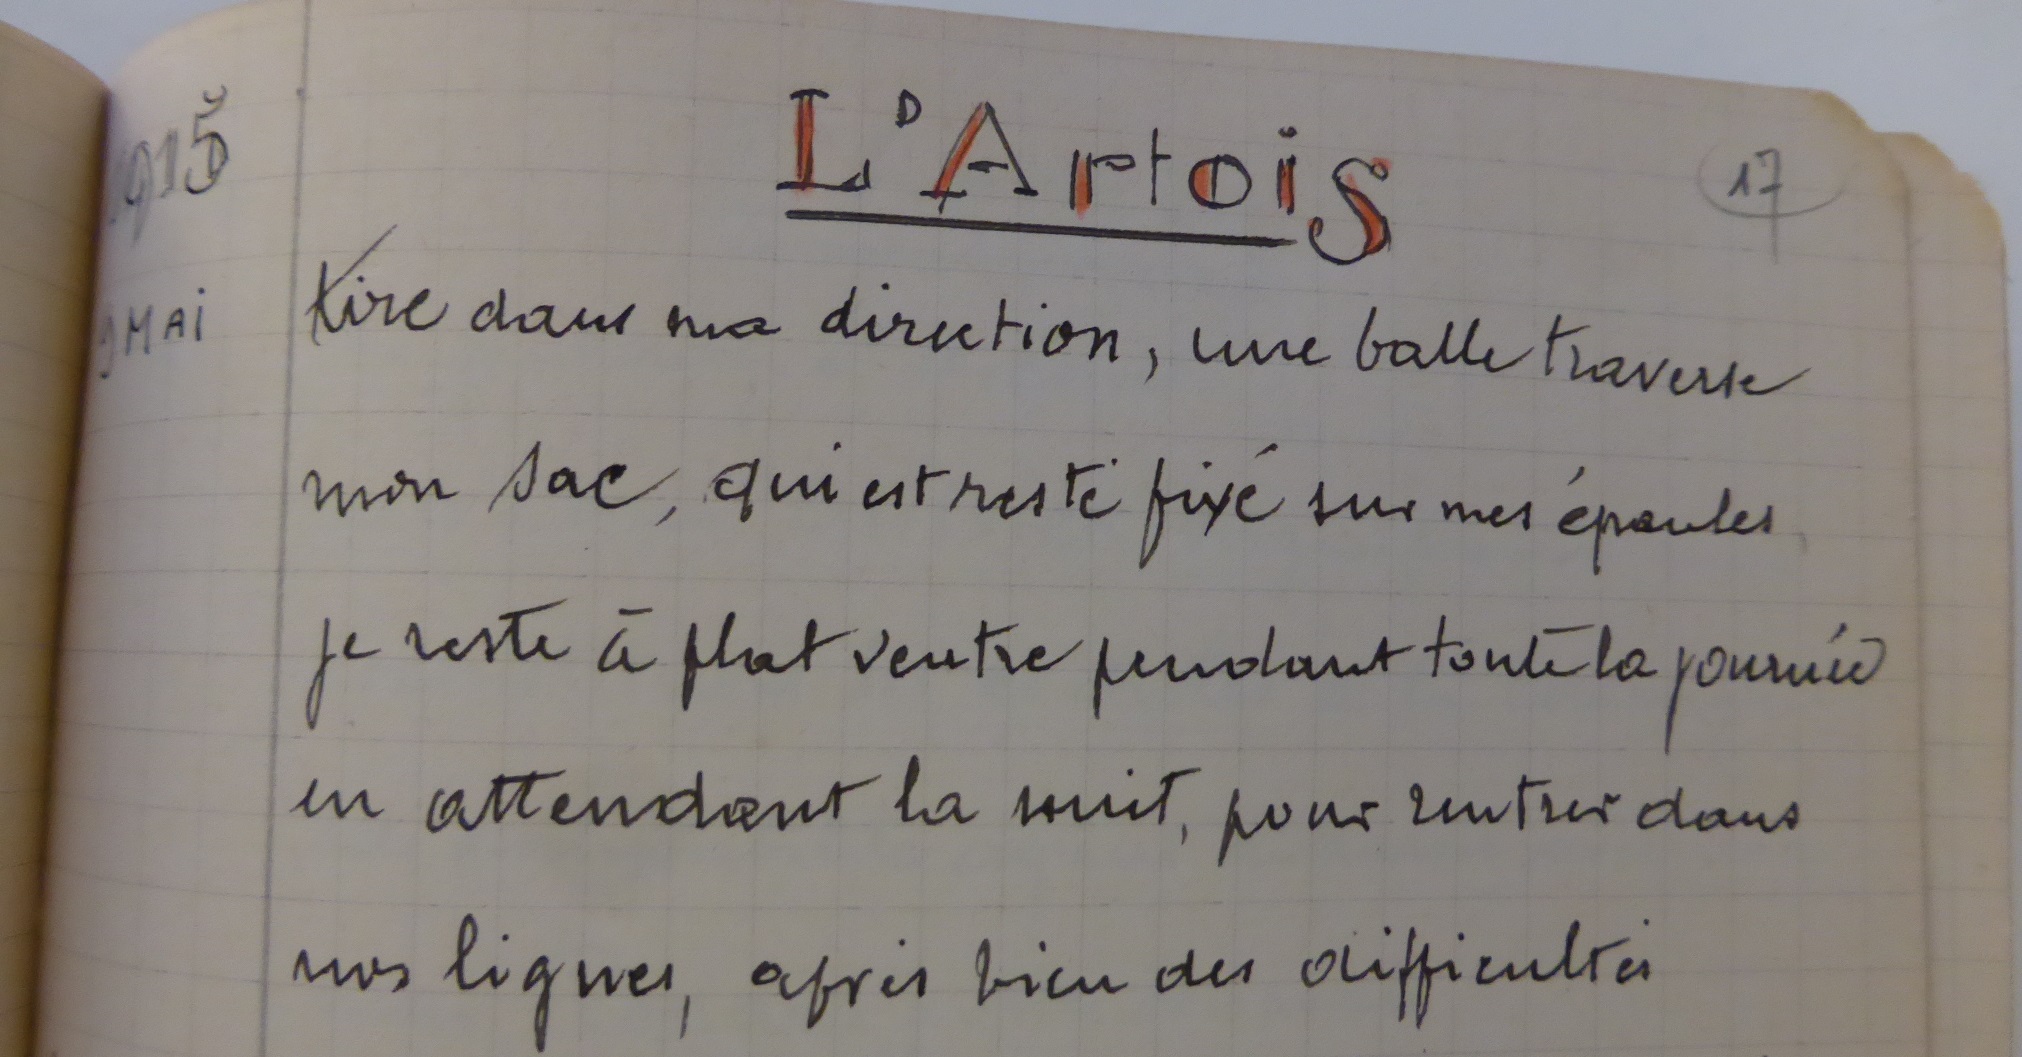 1915
L'Artois
17
9 MAI
tire dans ma direction, une balle traverse
mon sac, qui est resté fixé sur mes épaules,
je reste à plat ventre pendant toute la journée
en attendant la nuit, pour rentrer dans
nos lignes, après bien des difficultés